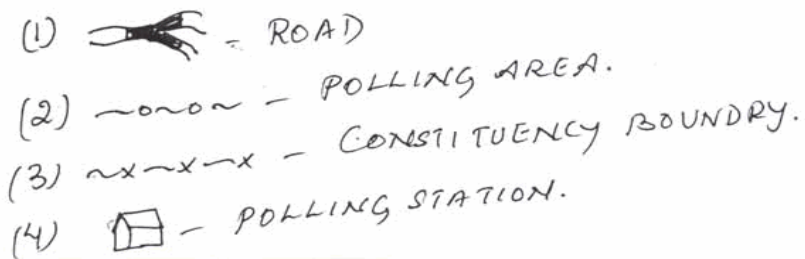 (1) - ROAD
(2) ~o~o~ - POLLING AREA.
(3) ~x~x~x - CONSTITUENCY BOUNDRY.
(4) - POLLING STATION.